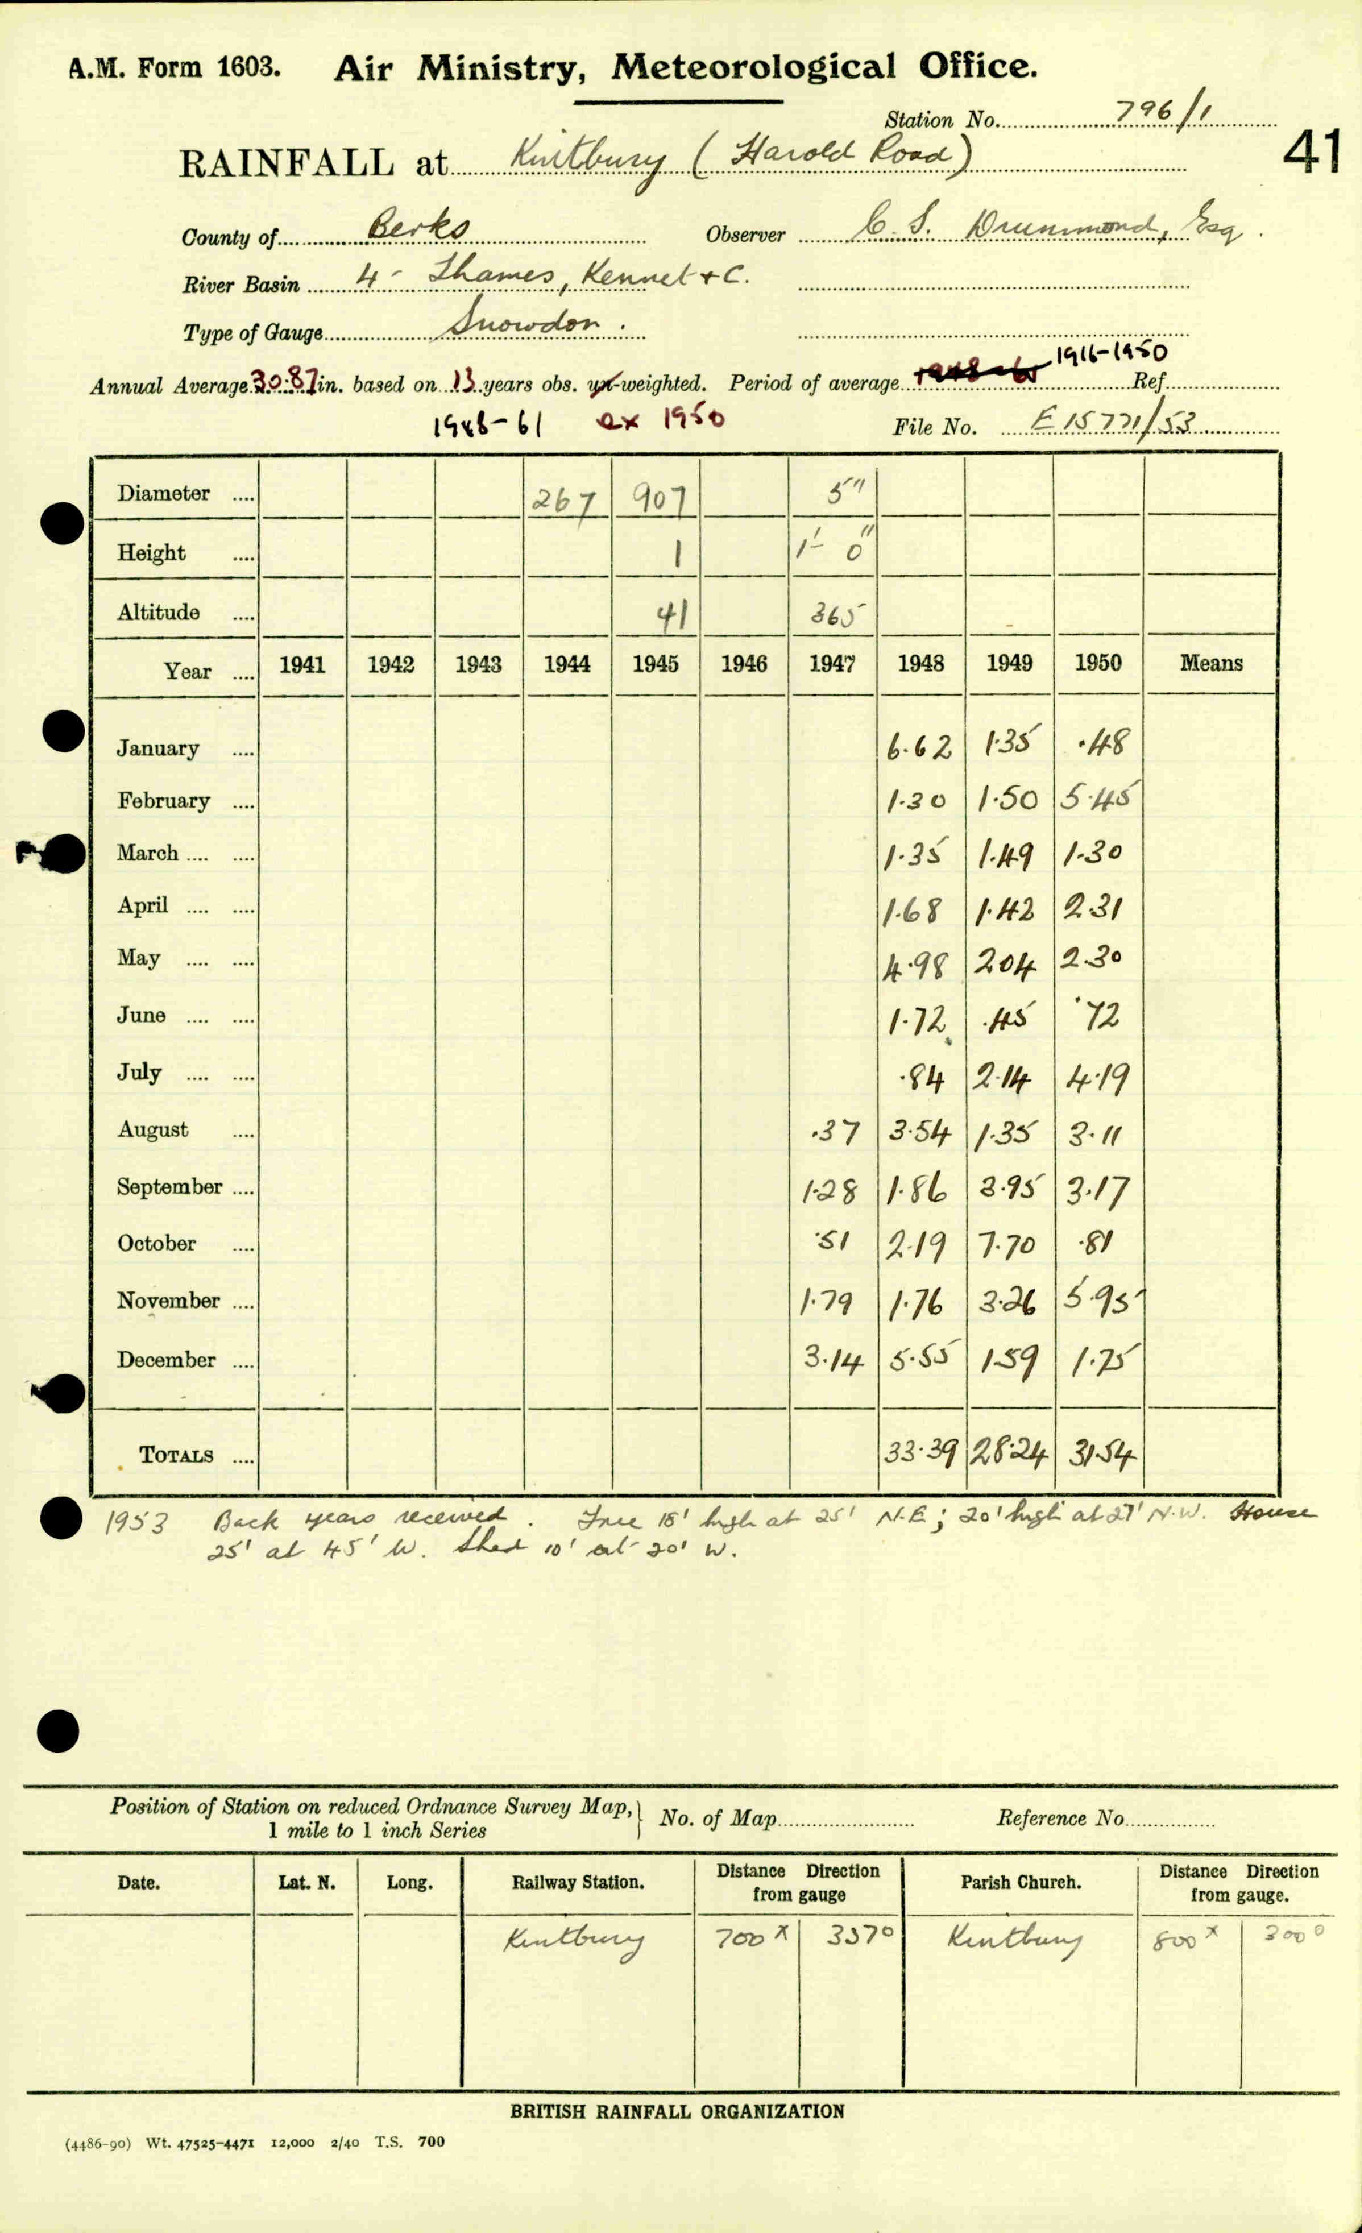 A.M. Form 1603. Air Ministry, Meteorological Office.
Station No. 796/1
41
RAINFALL at Kintbury (Harold Road)
County of Berks Observer C. S. Drummond, Esq.
River Basin 4 - Thames, Kennet + C.
Type of Gauge Snowdon.
Annual Average 30.87 in. based on 13 years obs. un-weighted. Period of average 1948-61 1916-1950 Ref.
1948-61 ex 1950 File No. E 15771/53
Diameter .... 267 907 5"
Height .... 1 1'- 0"
Altitude .... 41 365
Year .... 1941 1942 1943 1944 1945 1946 1947 1948 1949 1950 Means
January .... 6.62 1.35 .48
February .... 1.30 1.50 5.45
March .... .... 1.35 1.49 1.30
April .... .... 1.68 1.42 2.31
May .... .... 4.98 2.04 2.30
June .... .... 1.72 .45 .72
July .... .... .84 2.14 4.19
August .... .37 3.54 1.35 3.11
September .... 1.28 1.86 3.95 3.17
October .... .51 2.19 7.70 .81
November .... 1.79 1.76 3.26 5.95
December .... 3.14 5.55 1.59 1.75
TOTALS .... 33.39 28.24 31.54
1953 Back years received. Tree 15' high at 25' N.E; 20' high at 27' N.W. House
25' at 45' W. Shed 10' at 20' W.
Position of Station on reduced Ordnance Survey Map, 1 mile to 1 inch Series } No. of Map Reference No.
Date. Lat. N. Long. Railway Station. Distance Direction from gauge Parish Church. Distance Direction from gauge.
Kintbury 700 x 337° Kintbury 800 x 300°
BRITISH RAINFALL ORGANIZATION
(4486-90) Wt. 47525-4471 12,000 2/40 T.S. 700